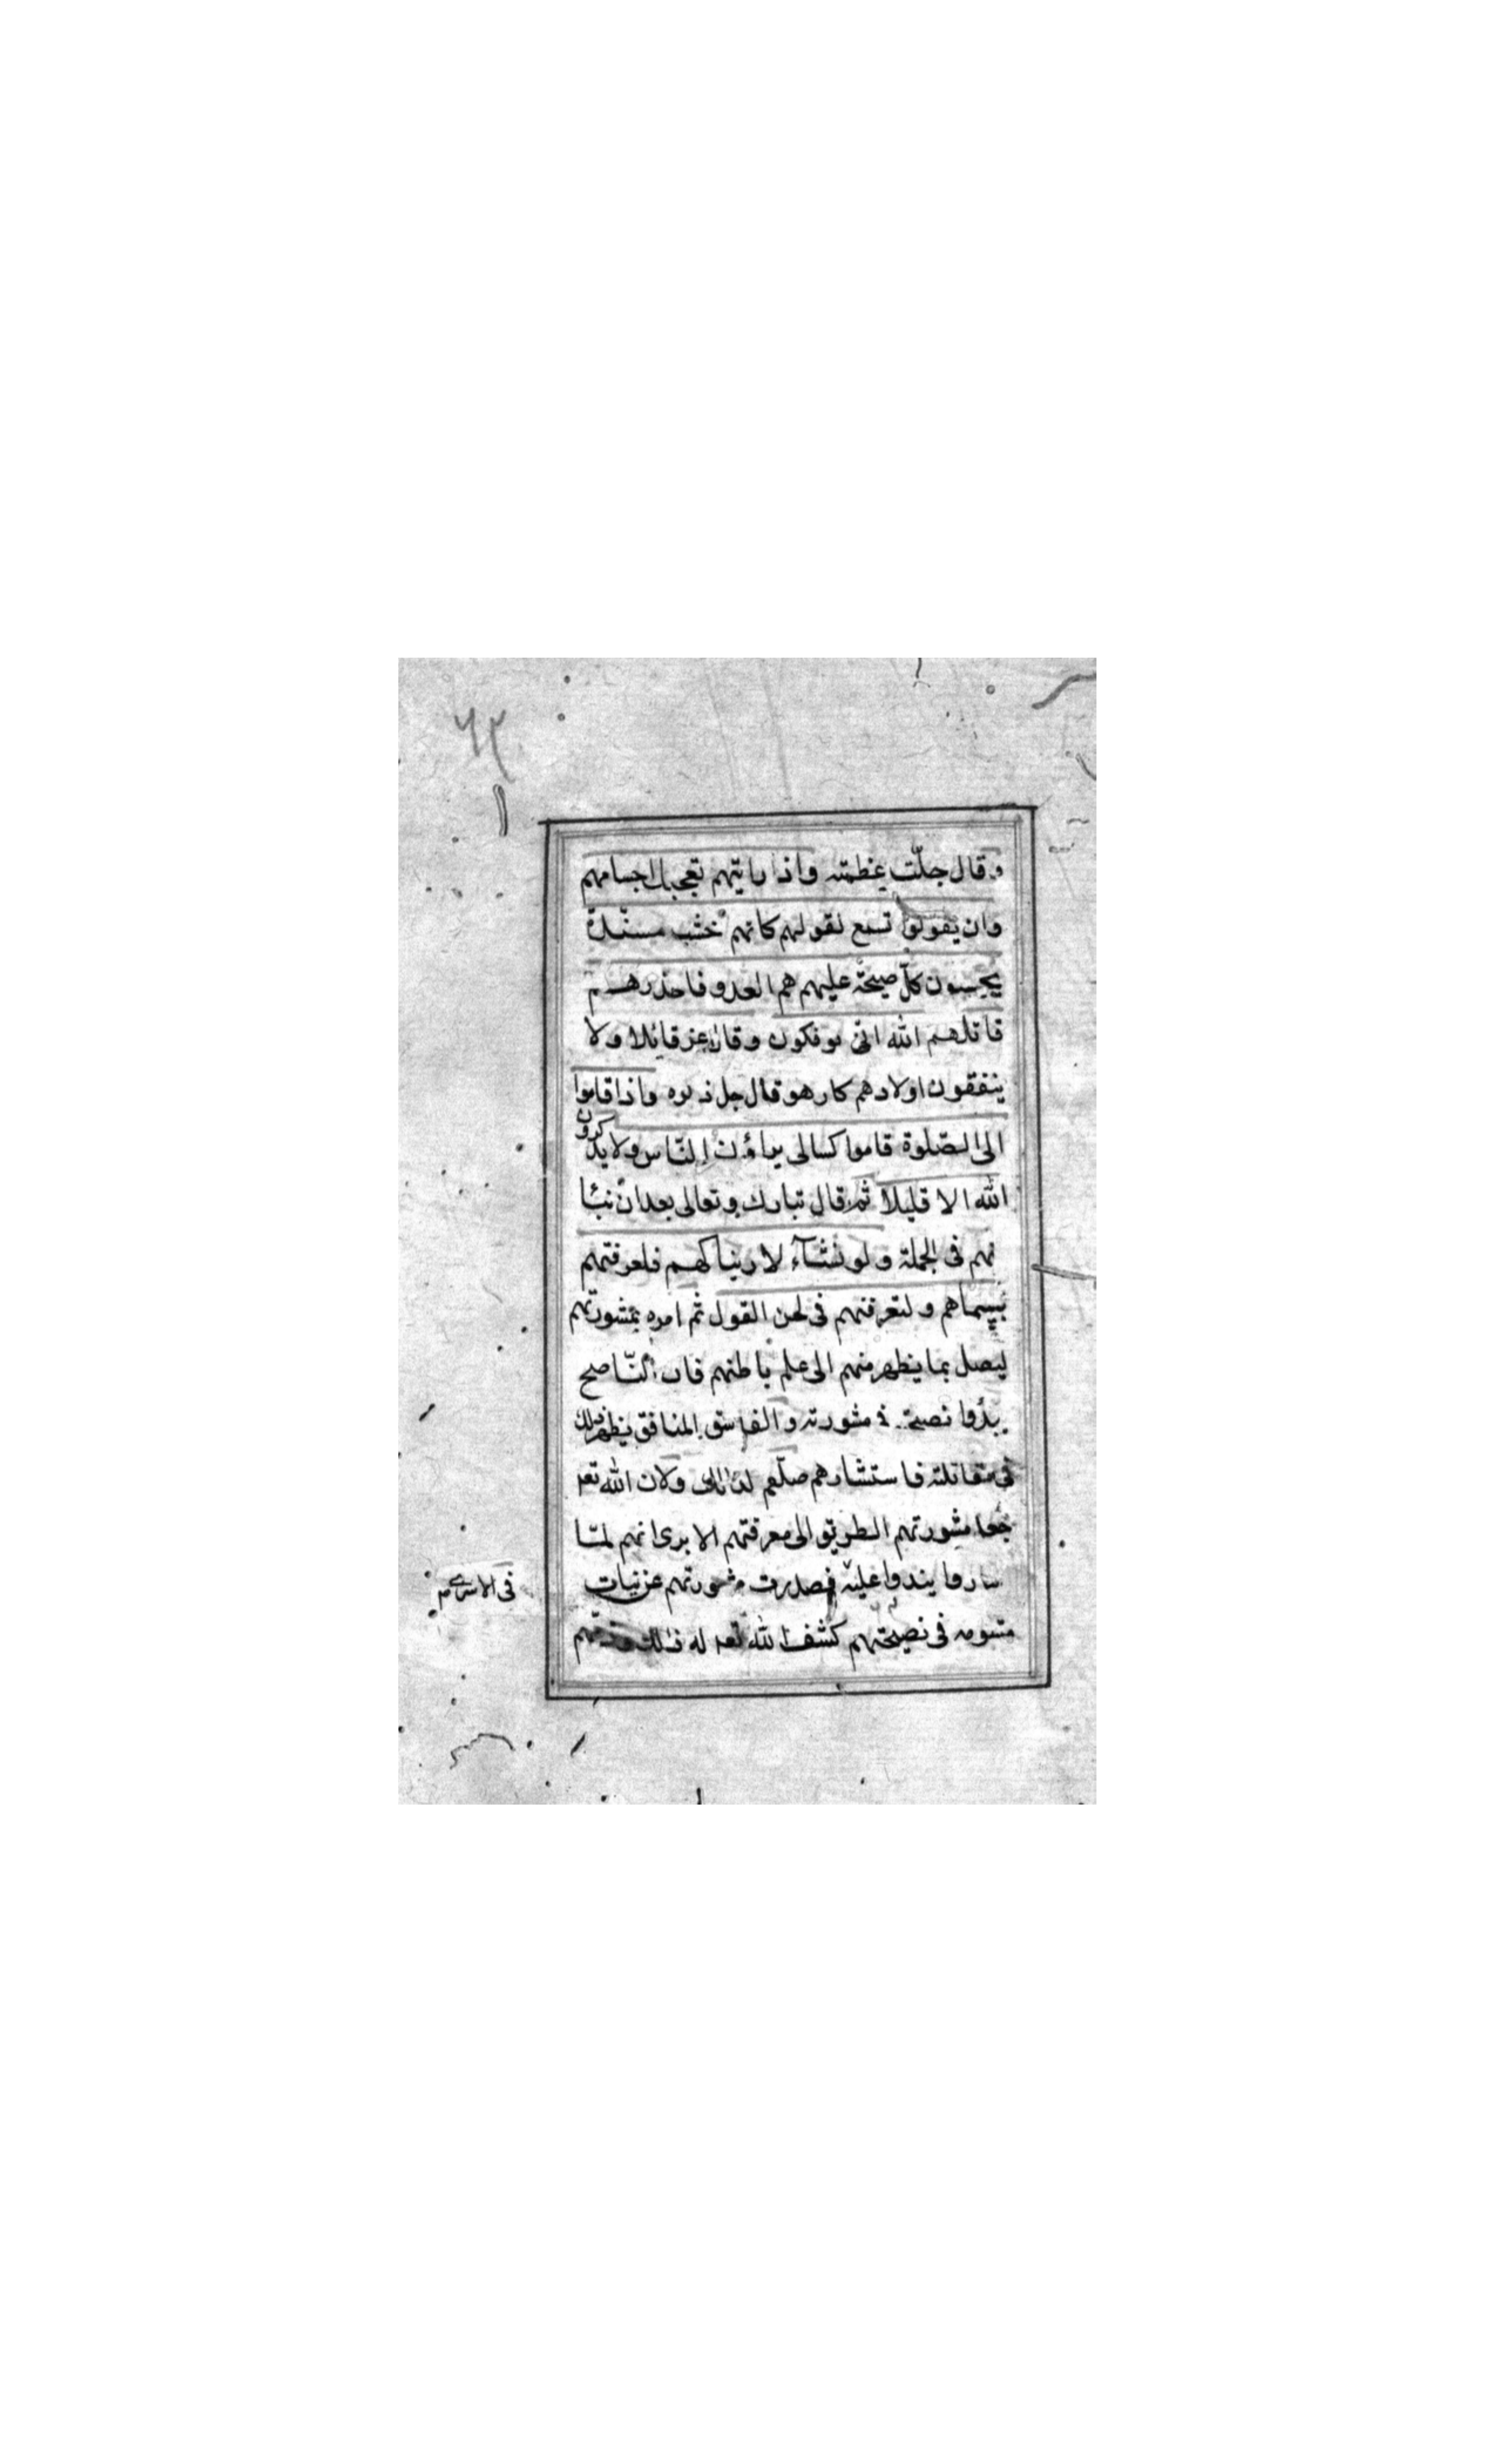 ٦٢
وقال جلّت عظمته واذا رايتهم تعجبك اجسامهم
وان يقولوا تسمع لقولهم كانهم خشب مسنّدة
يحسبون كلّ صيحة عليهم هم العدو فاحذرهم
قاتلهم الله انّى يوفكون وقال عز قائلا ولا
ينفقون اولادهم كارهو قال جل ذكره واذا قاموا
الى الصّلوة قاموا كسالى يراؤن النّاس ولا يذكرون
الله الا قليلا ثم قال تبارك وتعالى بعد ان نبّا
نهم فى الجملة ولو نشآء لاريناكهم فلعرفتهم
بسيماهم ولتعرفنهم فى لحن القول ثم امره بمشورتهم
ليصل بما يظهر منهم الى علم باطنهم فان النّاصح
يبدوا نصحته فى مشورته والفاسق المنافق يظهر ذلك
فى مقاتلته فاستشارهم صلّعم لذلك ولان الله تعم
جعل مشورتهم الطريق الى معرفتهم الا يرى انهم لمّا
ساروا ببدر عليه فصدرت مشورتهم عن نيات
فى الاسرى م
مشوبه فى نصيحتهم كشف الله تعم له ذلك وذمّهم